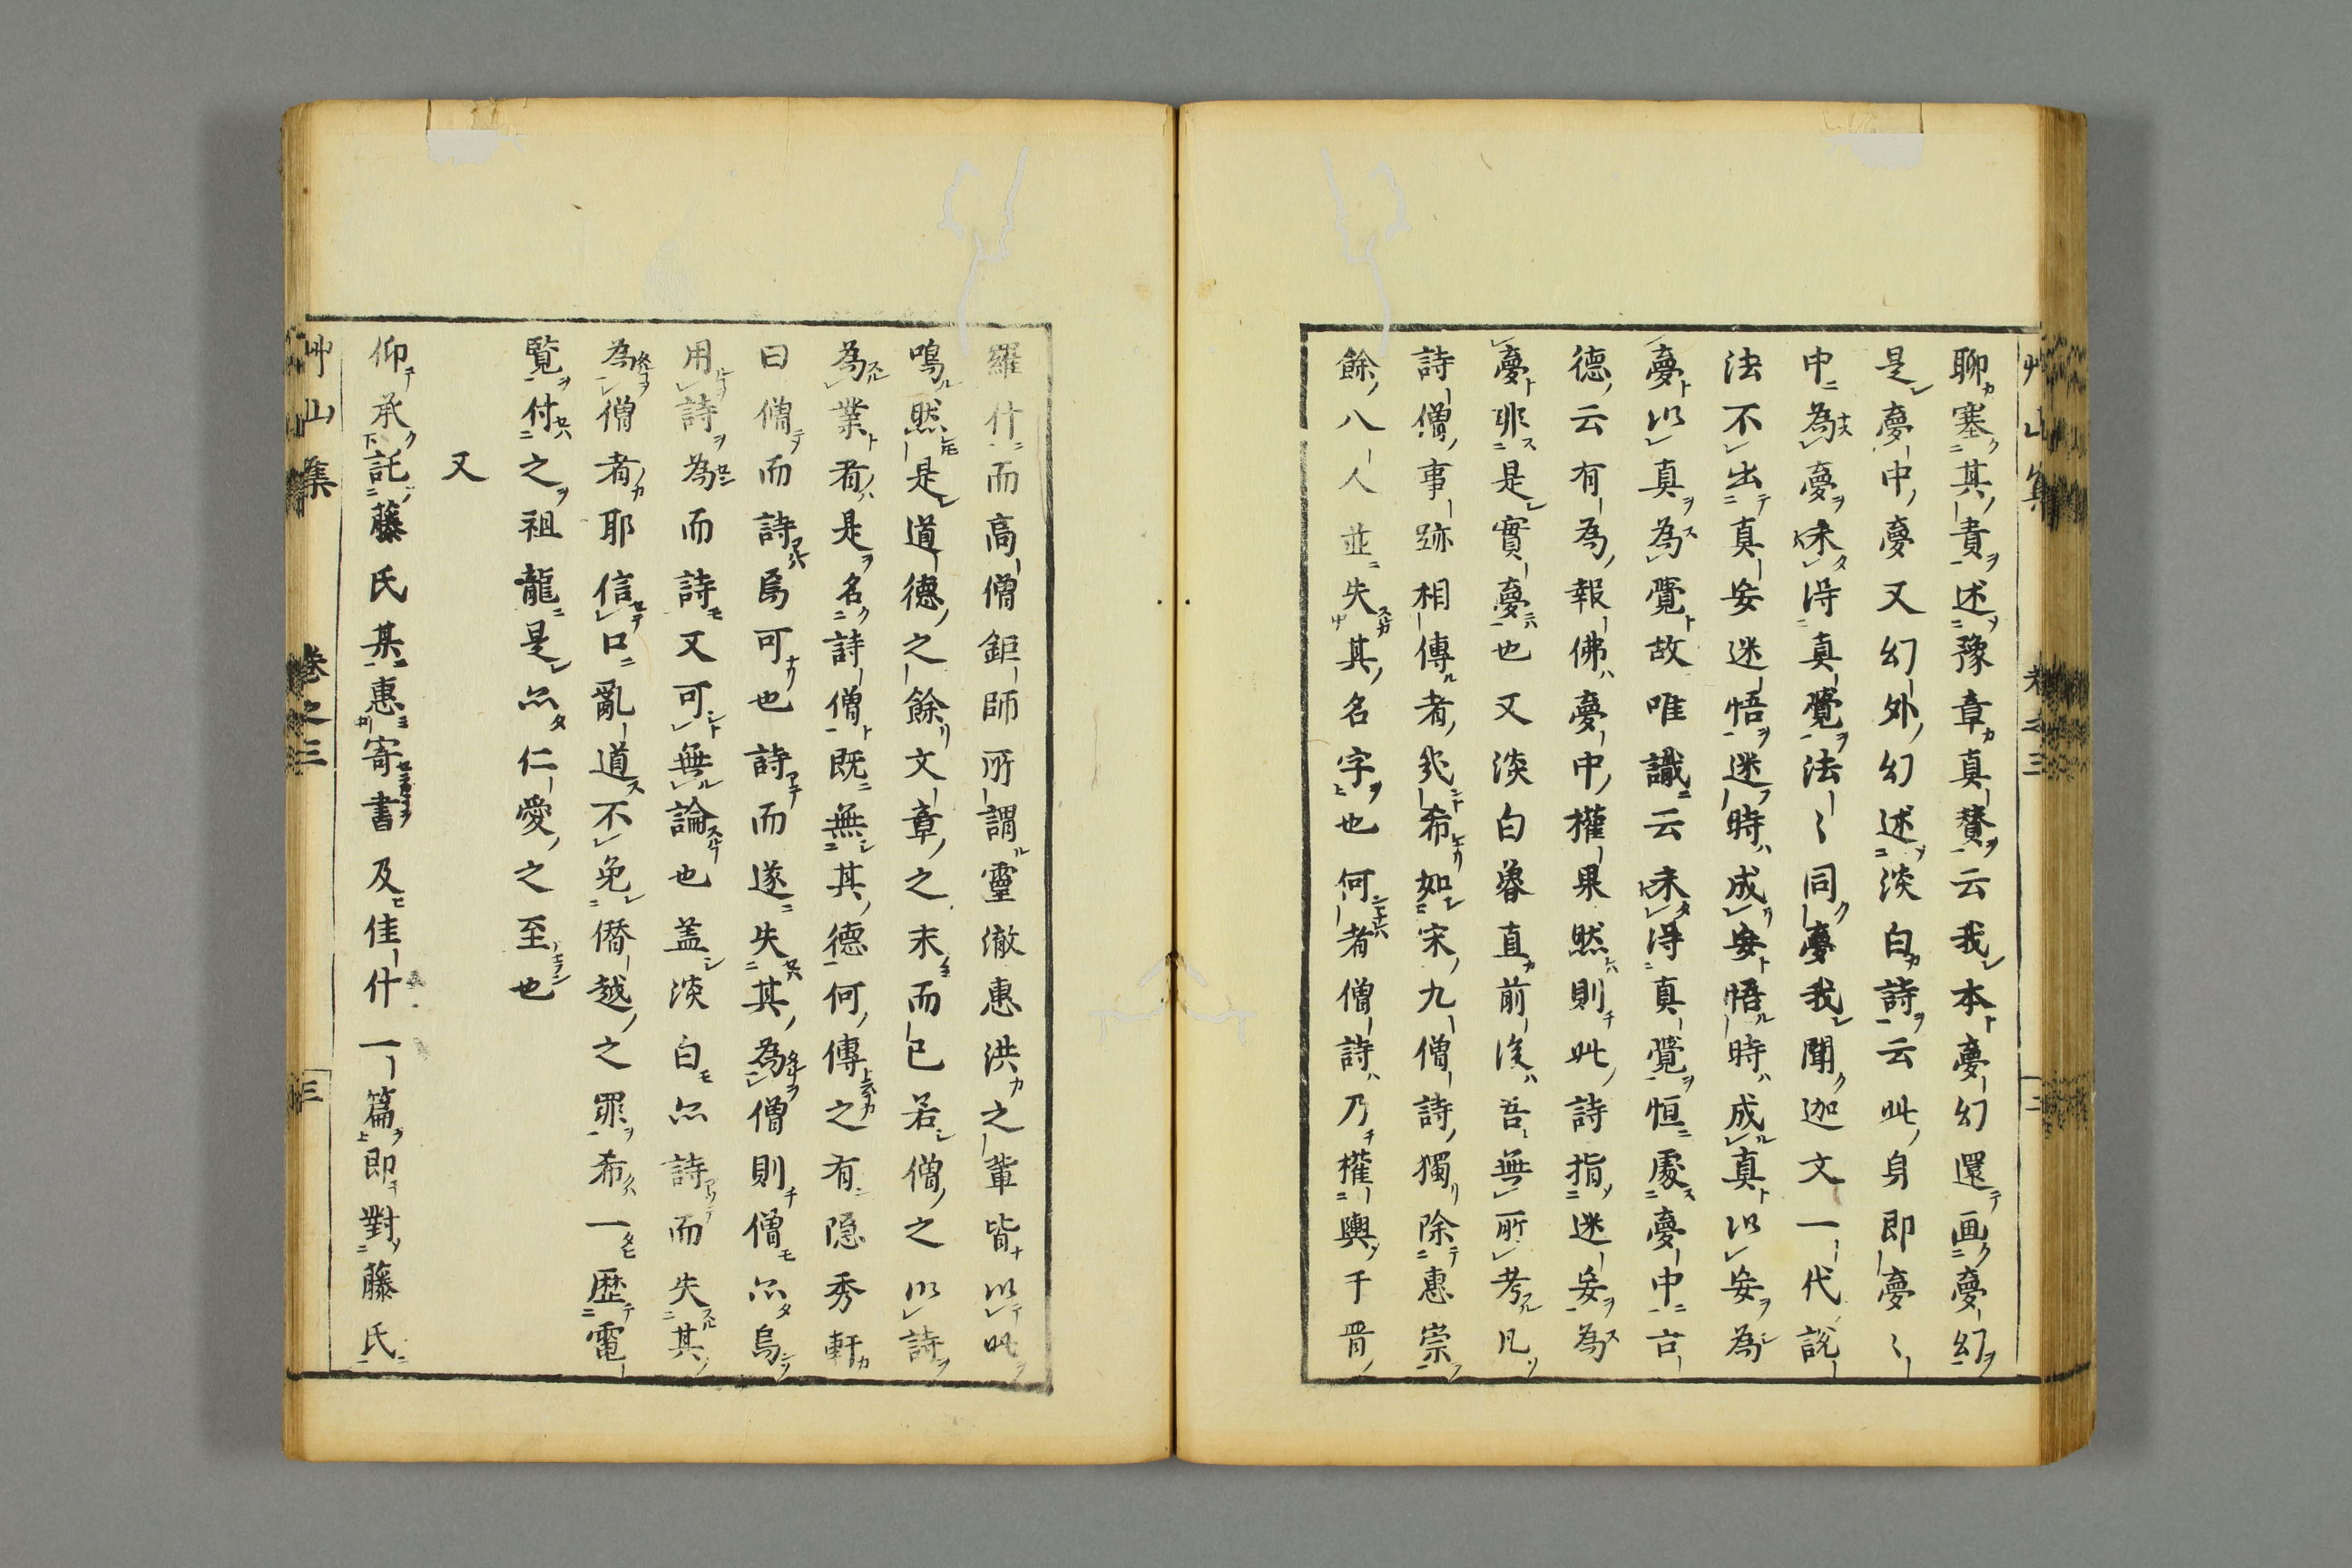 聊塞其責述豫章真賛云我本夢幻還画夢幻
是夢中夢又幻外幻述淡白詩云此身即夢〻
中為夢未得真覺法〻同夢我聞迦文一代說
法不出真妄迷悟迷時成妄悟時成真以妄為
夢以真為覺故唯識云未得真覺恒處夢中言
德云有為報佛夢中權果然則此詩指迷妄為
夢非是實夢也又淡白眷直前後吾無所考凡
詩僧事跡相傳者希如宋九僧詩獨除惠崇
餘八人並失其名字也何者僧詩乃權輿千晋
羅什而高僧鉅師所謂靈澈惠洪之輩皆以此
鳴然是道德之餘文章之末而已若僧之以詩
為業者是名詩僧既無其德何傳之有隱秀軒
曰僧而詩烏可也詩而遂失其為僧則僧亦烏
用詩為而詩又可無論也盖淡白亦詩而失其
為僧者耶信口亂道不免僭越之罪希一歷電
覽付之祖龍是亦仁愛之至也
又
仰承託藤氏某惠寄書及佳什一篇即對藤氏
艸山集 巻之三 三